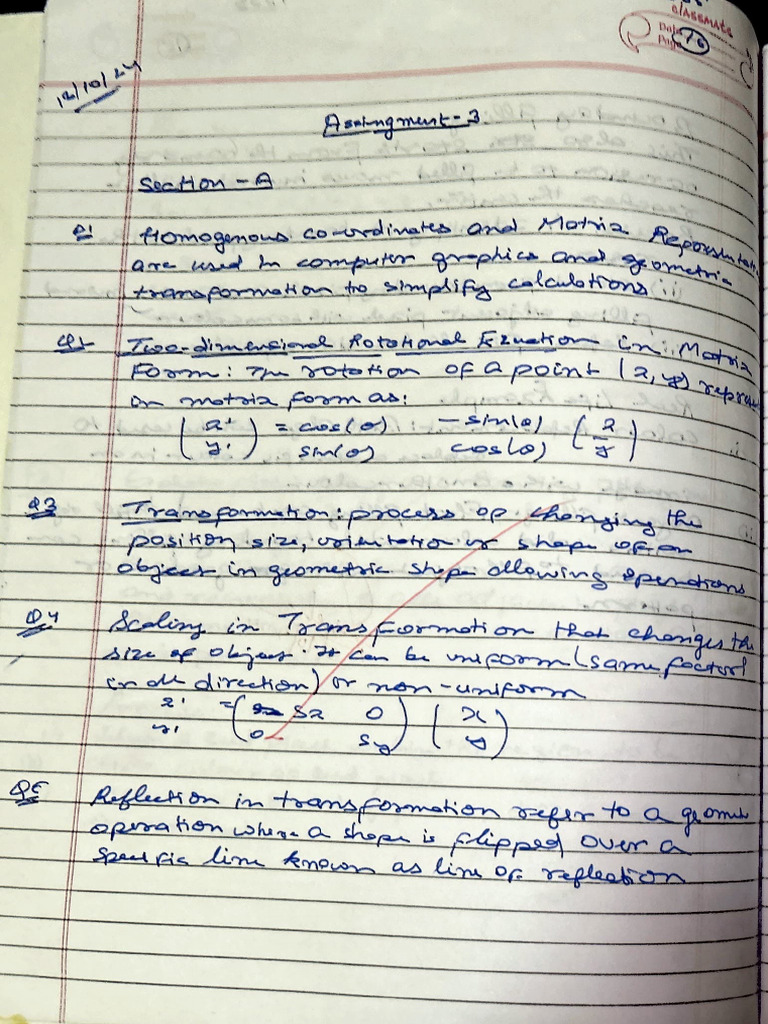 classmate
Date
Page 76
12/10/24
Assingment-3
Section - A
Q1 Homogenous co-ordinates and Matrix Reporsentati
are used in computer graphics and geometric
transformation to simplify calculations
Q2 Two-dimensional Rotational Equation in Matrix
Form: The rotation of a point (x, y) repres
in matrix form as:
( x' ) = cos(θ) -sin(θ) ( x )
( y' ) sin(θ) cos(θ) ( y )
Q3 Transformation: process of changing the
position, size, orientation or shape of an
object in geometric shape allowing operations
Q4 Scaling in Transformation that changes the
size of object. It can be uniform (same factor
in all direction) or non-uniform
x' = ( Sx 0 ) ( x )
y' ( 0 Sy ) ( y )
Q5 Reflection in transformation refer to a geome
operation where a shape is flipped over a
specific line known as line of reflection